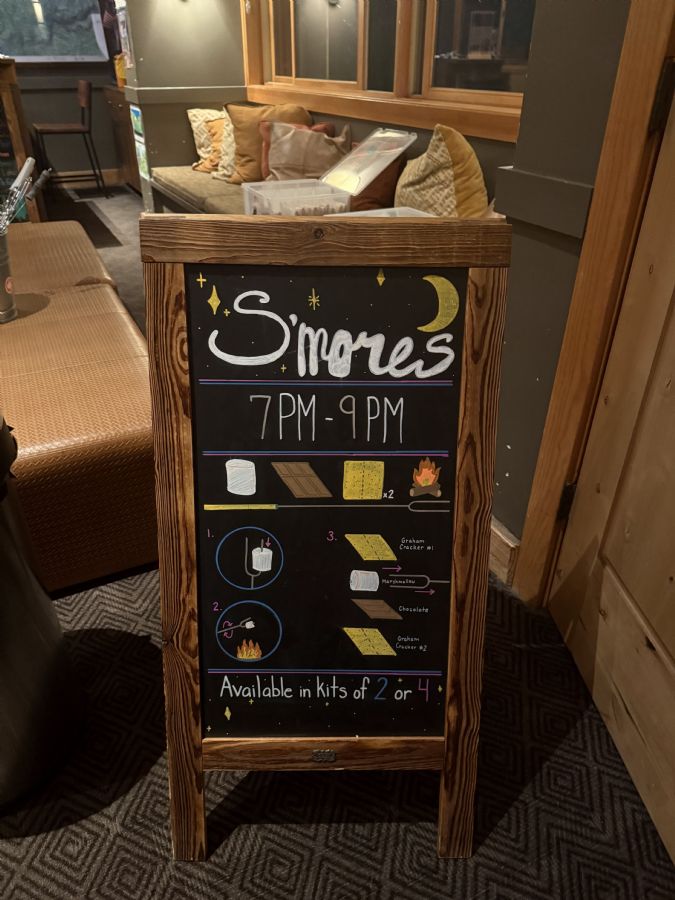 S'mores
7PM - 9PM
x2
1.
2.
3.
Graham
Cracker #1
Marshmallow
Chocolate
Graham
Cracker #2
Available in kits of 2 or 4